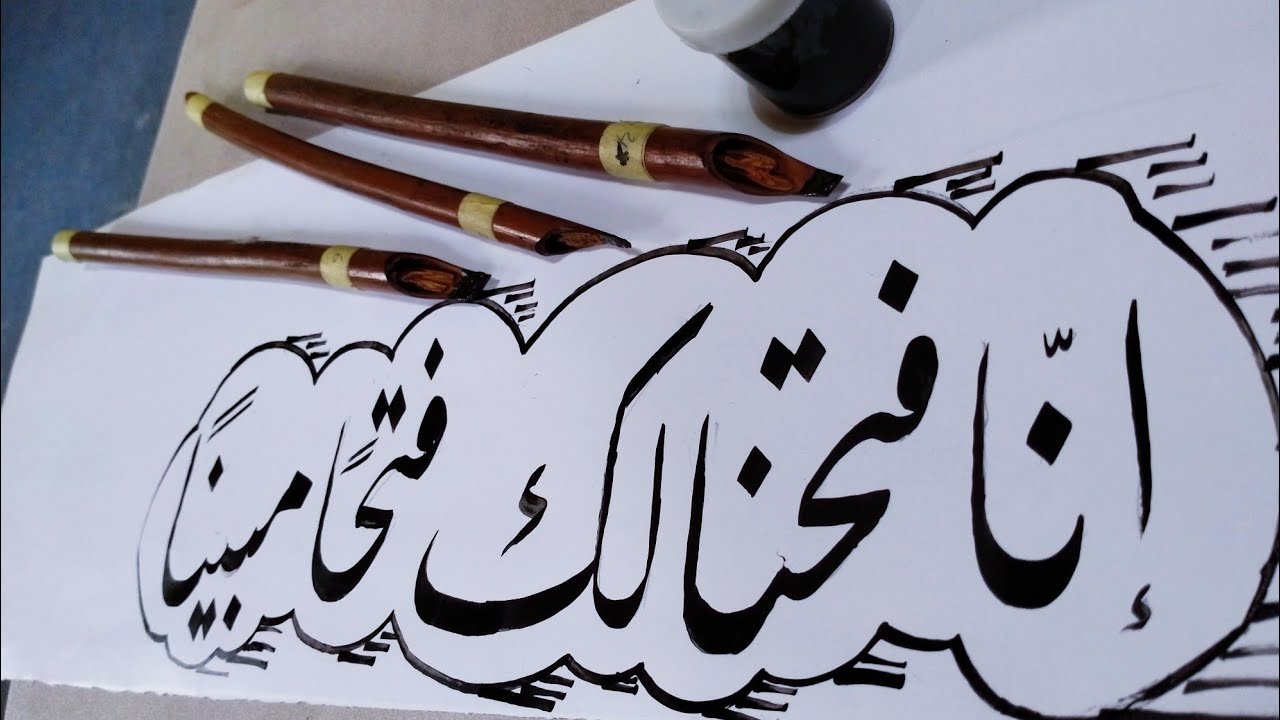 إنّا فتحنا لك فتحًا مبينًا